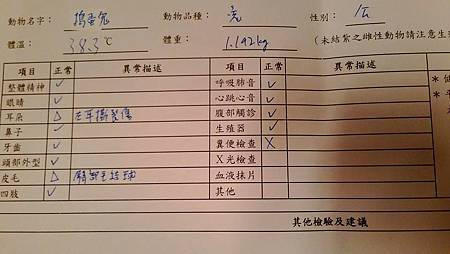 動物名字： 搗蛋鬼 動物品種： 兔 性別： 公
體溫： 38.3℃ 體重： 1.142kg (未結紮之雌性動物請注意生
項目 正常 異常描述 項目 正常 異常描述
整體精神 ✓ 呼吸肺音 ✓
眼睛 ✓ 心跳心音 ✓
耳朵 △ 左耳撕裂傷 腹部觸診 ✓
鼻子 ✓ 生殖器 ✓
牙齒 ✓ 糞便檢查 X
頭部外型 ✓ X光檢查
皮毛 △ 毛結球 血液抹片
四肢 ✓ 其他
其他檢驗及建議